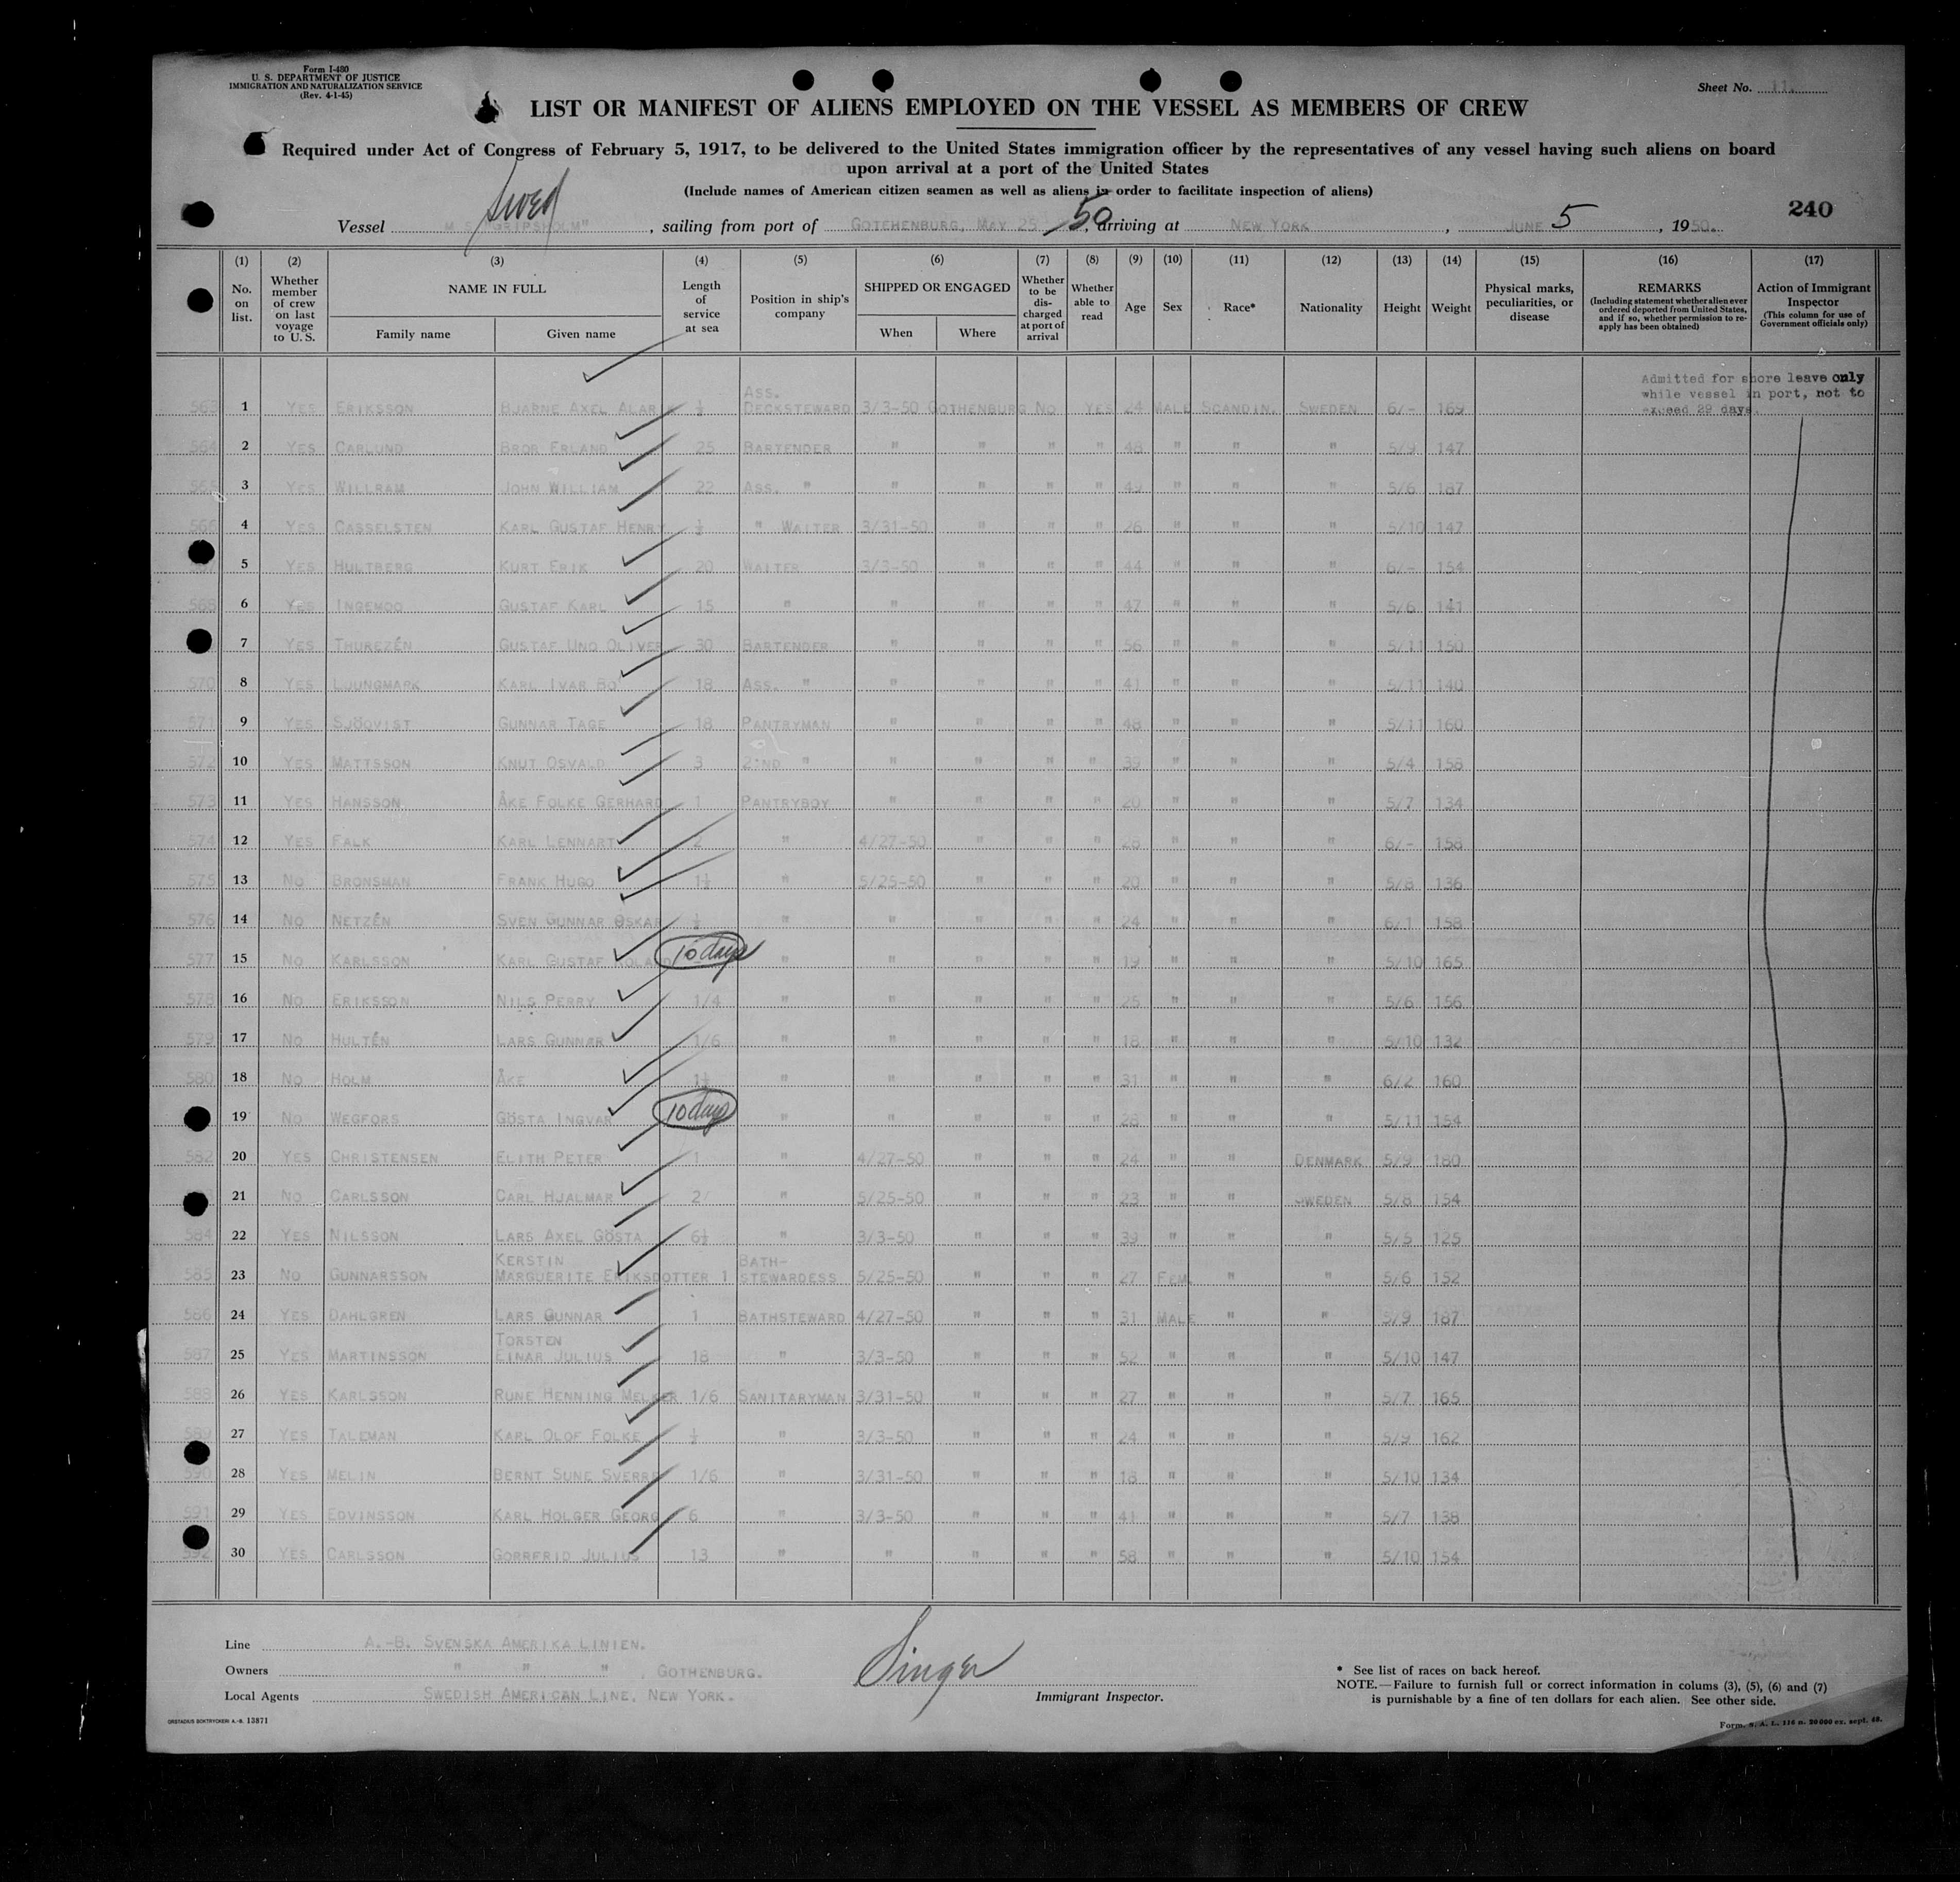 Form I-480
U. S. DEPARTMENT OF JUSTICE
IMMIGRATION AND NATURALIZATION SERVICE
(Rev. 4-1-45)
Sheet No. 11.
LIST OR MANIFEST OF ALIENS EMPLOYED ON THE VESSEL AS MEMBERS OF CREW
Required under Act of Congress of February 5, 1917, to be delivered to the United States immigration officer by the representatives of any vessel having such aliens on board
upon arrival at a port of the United States
(Include names of American citizen seamen as well as aliens in order to facilitate inspection of aliens)
Swed
240
Vessel M.S. "GRIPSHOLM", sailing from port of GOTEHENBURG, MAY 25 50, arriving at NEW YORK, JUNE 5, 1950.
(1) (2) (3) (4) (5) (6) (7) (8) (9) (10) (11) (12) (13) (14) (15) (16) (17)
No. on list. Whether member of crew on last voyage to U. S. NAME IN FULL Family name Given name Length of service at sea Position in ship's company SHIPPED OR ENGAGED When Where Whether to be discharged at port of arrival Whether able to read Age Sex Race* Nationality Height Weight Physical marks, peculiarities, or disease REMARKS (Including statement whether alien ever ordered deported from United States, and if so, whether permission to reapply has been obtained) Action of Immigrant Inspector (This column for use of Government officials only)
Admitted for shore leave only
while vessel in port, not to
exceed 29 days.
563 1 YES ERIKSSON BJARNE AXEL ALAR ½ ASS. DECKSTEWARD 3/3-50 GOTHENBURG NO YES 24 MALE SCANDIN. SWEDEN 6/- 169
564 2 YES CARLUND BROR ERLAND 25 BARTENDER " " " " 48 " " " 5/9 147
565 3 YES WILLRAM JOHN WILLIAM 22 ASS. " " " " " 49 " " " 5/6 187
566 4 YES CASSELSTEN KARL GUSTAF HENRY ½ " WAITER 3/31-50 " " " 26 " " " 5/10 147
5 YES HULTBERG KURT ERIK 20 WAITER 3/3-50 " " " 44 " " " 6/- 154
568 6 YES INGEMOO GUSTAF KARL 15 " " " " " 47 " " " 5/6 141
7 YES THUREZÉN GUSTAF UNO OLIVER 30 BARTENDER " " " " 56 " " " 5/11 150
570 8 YES LJUNGMARK KARL IVAR BO 18 ASS. " " " " " 41 " " " 5/11 140
571 9 YES SJÖQVIST GUNNAR TAGE 18 PANTRYMAN " " " " 48 " " " 5/11 160
572 10 YES MATTSSON KNUT OSVALD 3 2:ND " " " " " 39 " " " 5/4 158
573 11 YES HANSSON ÅKE FOLKE GERHARD 1 PANTRYBOY " " " " 20 " " " 5/7 134
574 12 YES FALK KARL LENNART 2 " 4/27-50 " " " 28 " " " 6/- 158
575 13 NO BRONSMAN FRANK HUGO 1½ " 5/25-50 " " " 20 " " " 5/8 136
576 14 NO NETZÉN SVEN GUNNAR OSKAR ½ " " " " " 24 " " " 6/1 158
577 15 NO KARLSSON KARL GUSTAF ROLAND 10 days " " " " " 19 " " " 5/10 165
578 16 NO ERIKSSON NILS PERRY 1/4 " " " " " 25 " " " 5/6 156
579 17 NO HULTÉN LARS GUNNAR 1/6 " " " " " 18 " " " 5/10 132
580 18 NO HOLM ÅKE 1½ " " " " " 31 " " " 6/2 160
19 NO WEGFORS GÖSTA INGVAR 10 days " " " " " 28 " " " 5/11 154
582 20 YES CHRISTENSEN ELITH PETER 1 " 4/27-50 " " " 24 " " DENMARK 5/9 180
21 NO CARLSSON CARL HJALMAR 2 " 5/25-50 " " " 23 " " SWEDEN 5/8 154
584 22 YES NILSSON LARS AXEL GÖSTA 6½ " 3/3-50 " " " 39 " " " 5/5 125
585 23 NO GUNNARSSON KERSTIN MARGUERITE ERIKSDOTTER 1 BATH-STEWARDESS 5/25-50 " " " 27 FEM. " " 5/6 152
586 24 YES DAHLGREN LARS GUNNAR 1 BATHSTEWARD 4/27-50 " " " 31 MALE " " 5/9 187
587 25 YES MARTINSSON TORSTEN EINAR JULIUS 18 " 3/3-50 " " " 52 " " " 5/10 147
588 26 YES KARLSSON RUNE HENNING MELKER 1/6 SANITARYMAN 3/31-50 " " " 27 " " " 5/7 165
589 27 YES TALEMAN KARL OLOF FOLKE ½ " 3/3-50 " " " 24 " " " 5/9 162
590 28 YES MELIN BERNT SUNE SVERRE 1/6 " 3/31-50 " " " 18 " " " 5/10 134
591 29 YES EDVINSSON KARL HOLGER GEORG 6 " 3/3-50 " " " 41 " " " 5/7 138
592 30 YES CARLSSON GORRFRID JULIUS 13 " " " " " 58 " " " 5/10 154
Line A.-B. SVENSKA AMERIKA LINIEN.
Owners " " " , GOTHENBURG.
Local Agents SWEDISH AMERICAN LINE, NEW YORK.
Singer
Immigrant Inspector.
* See list of races on back hereof.
NOTE.—Failure to furnish full or correct information in colums (3), (5), (6) and (7)
is punishable by a fine of ten dollars for each alien. See other side.
ORSTADIUS BOKTRYCKERI A.-B. 13871
Form. S. A. L. 116 n. 20 000 ex. sept. 48.